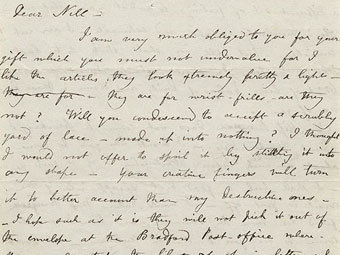 Dear Nell —
I am very much obliged to you for your
gift which you must not undervalue for I
like the articles, they look extremely pretty & light —
they are for — they are for wrist frills — are they
not? Will you condescend to accept a scrubby
yard of lace — made up into nothing? I thought
I would not offer to spoil it by stitching it into
any shape — Your creative fingers will turn
it to better account than my destructive ones —
— I hope such as it is they will not pick it out of
the envelope at the Bradford Post-office where